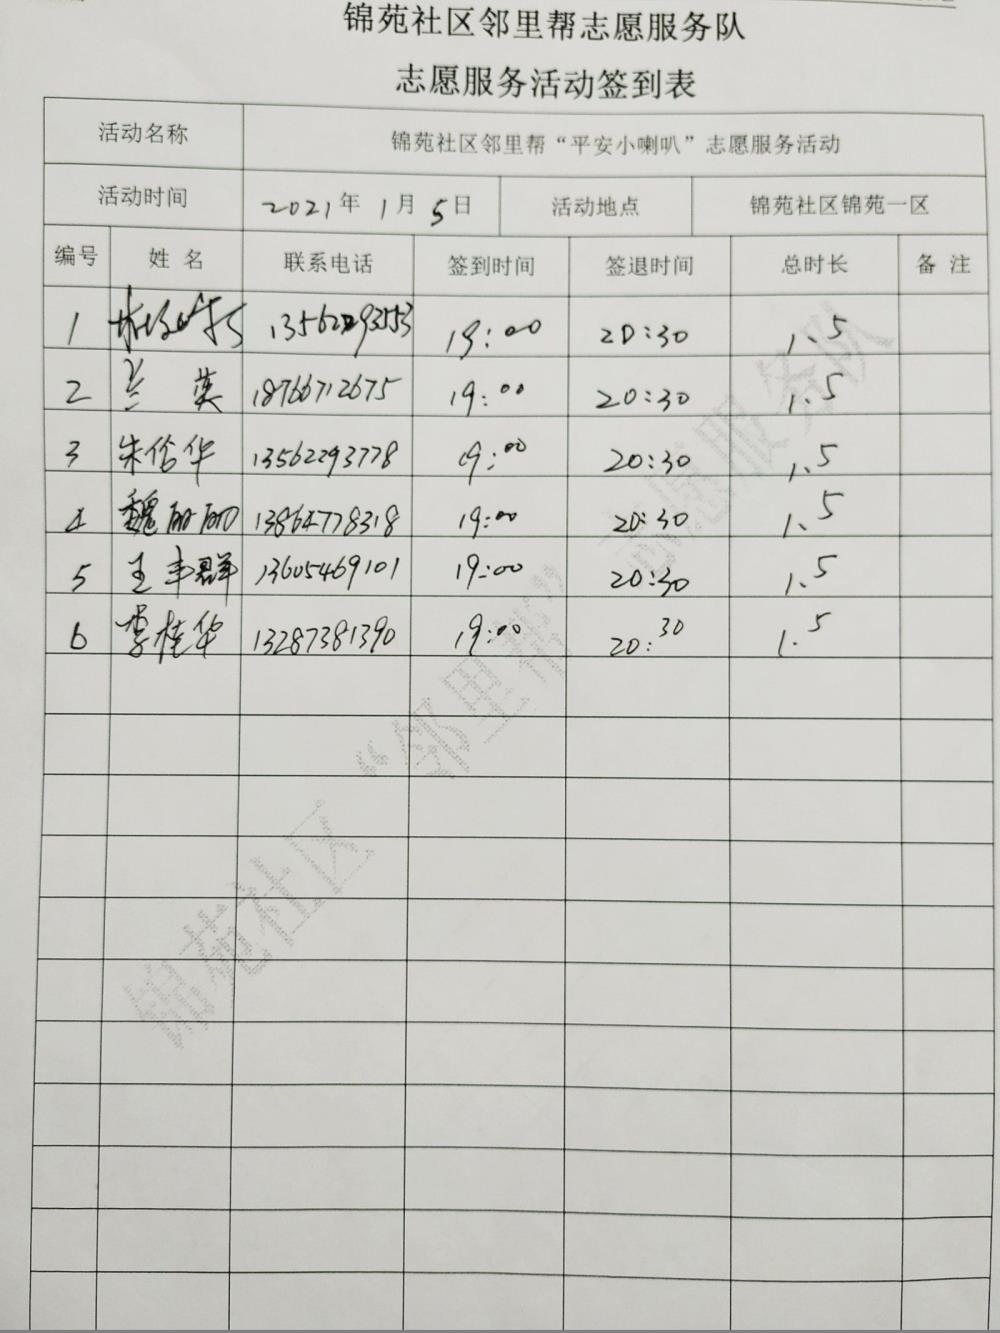 锦苑社区邻里帮志愿服务队
志愿服务活动签到表
活动名称 锦苑社区邻里帮“平安小喇叭”志愿服务活动
活动时间 2021年 1月 5日 活动地点 锦苑社区锦苑一区
编号 姓 名 联系电话 签到时间 签退时间 总时长 备 注
1 19:00 20:30 1.5
2 兰 英 18766712675 19:00 20:30 1.5
3 朱俗华 13562293778 19:00 20:30 1.5
4 魏丽丽 13864778318 19:00 20:30 1.5
5 王丰群 13605469101 19:00 20:30 1.5
6 李桂华 13287381390 19:00 20:30 1.5
锦苑社区“邻里帮”志愿服务队